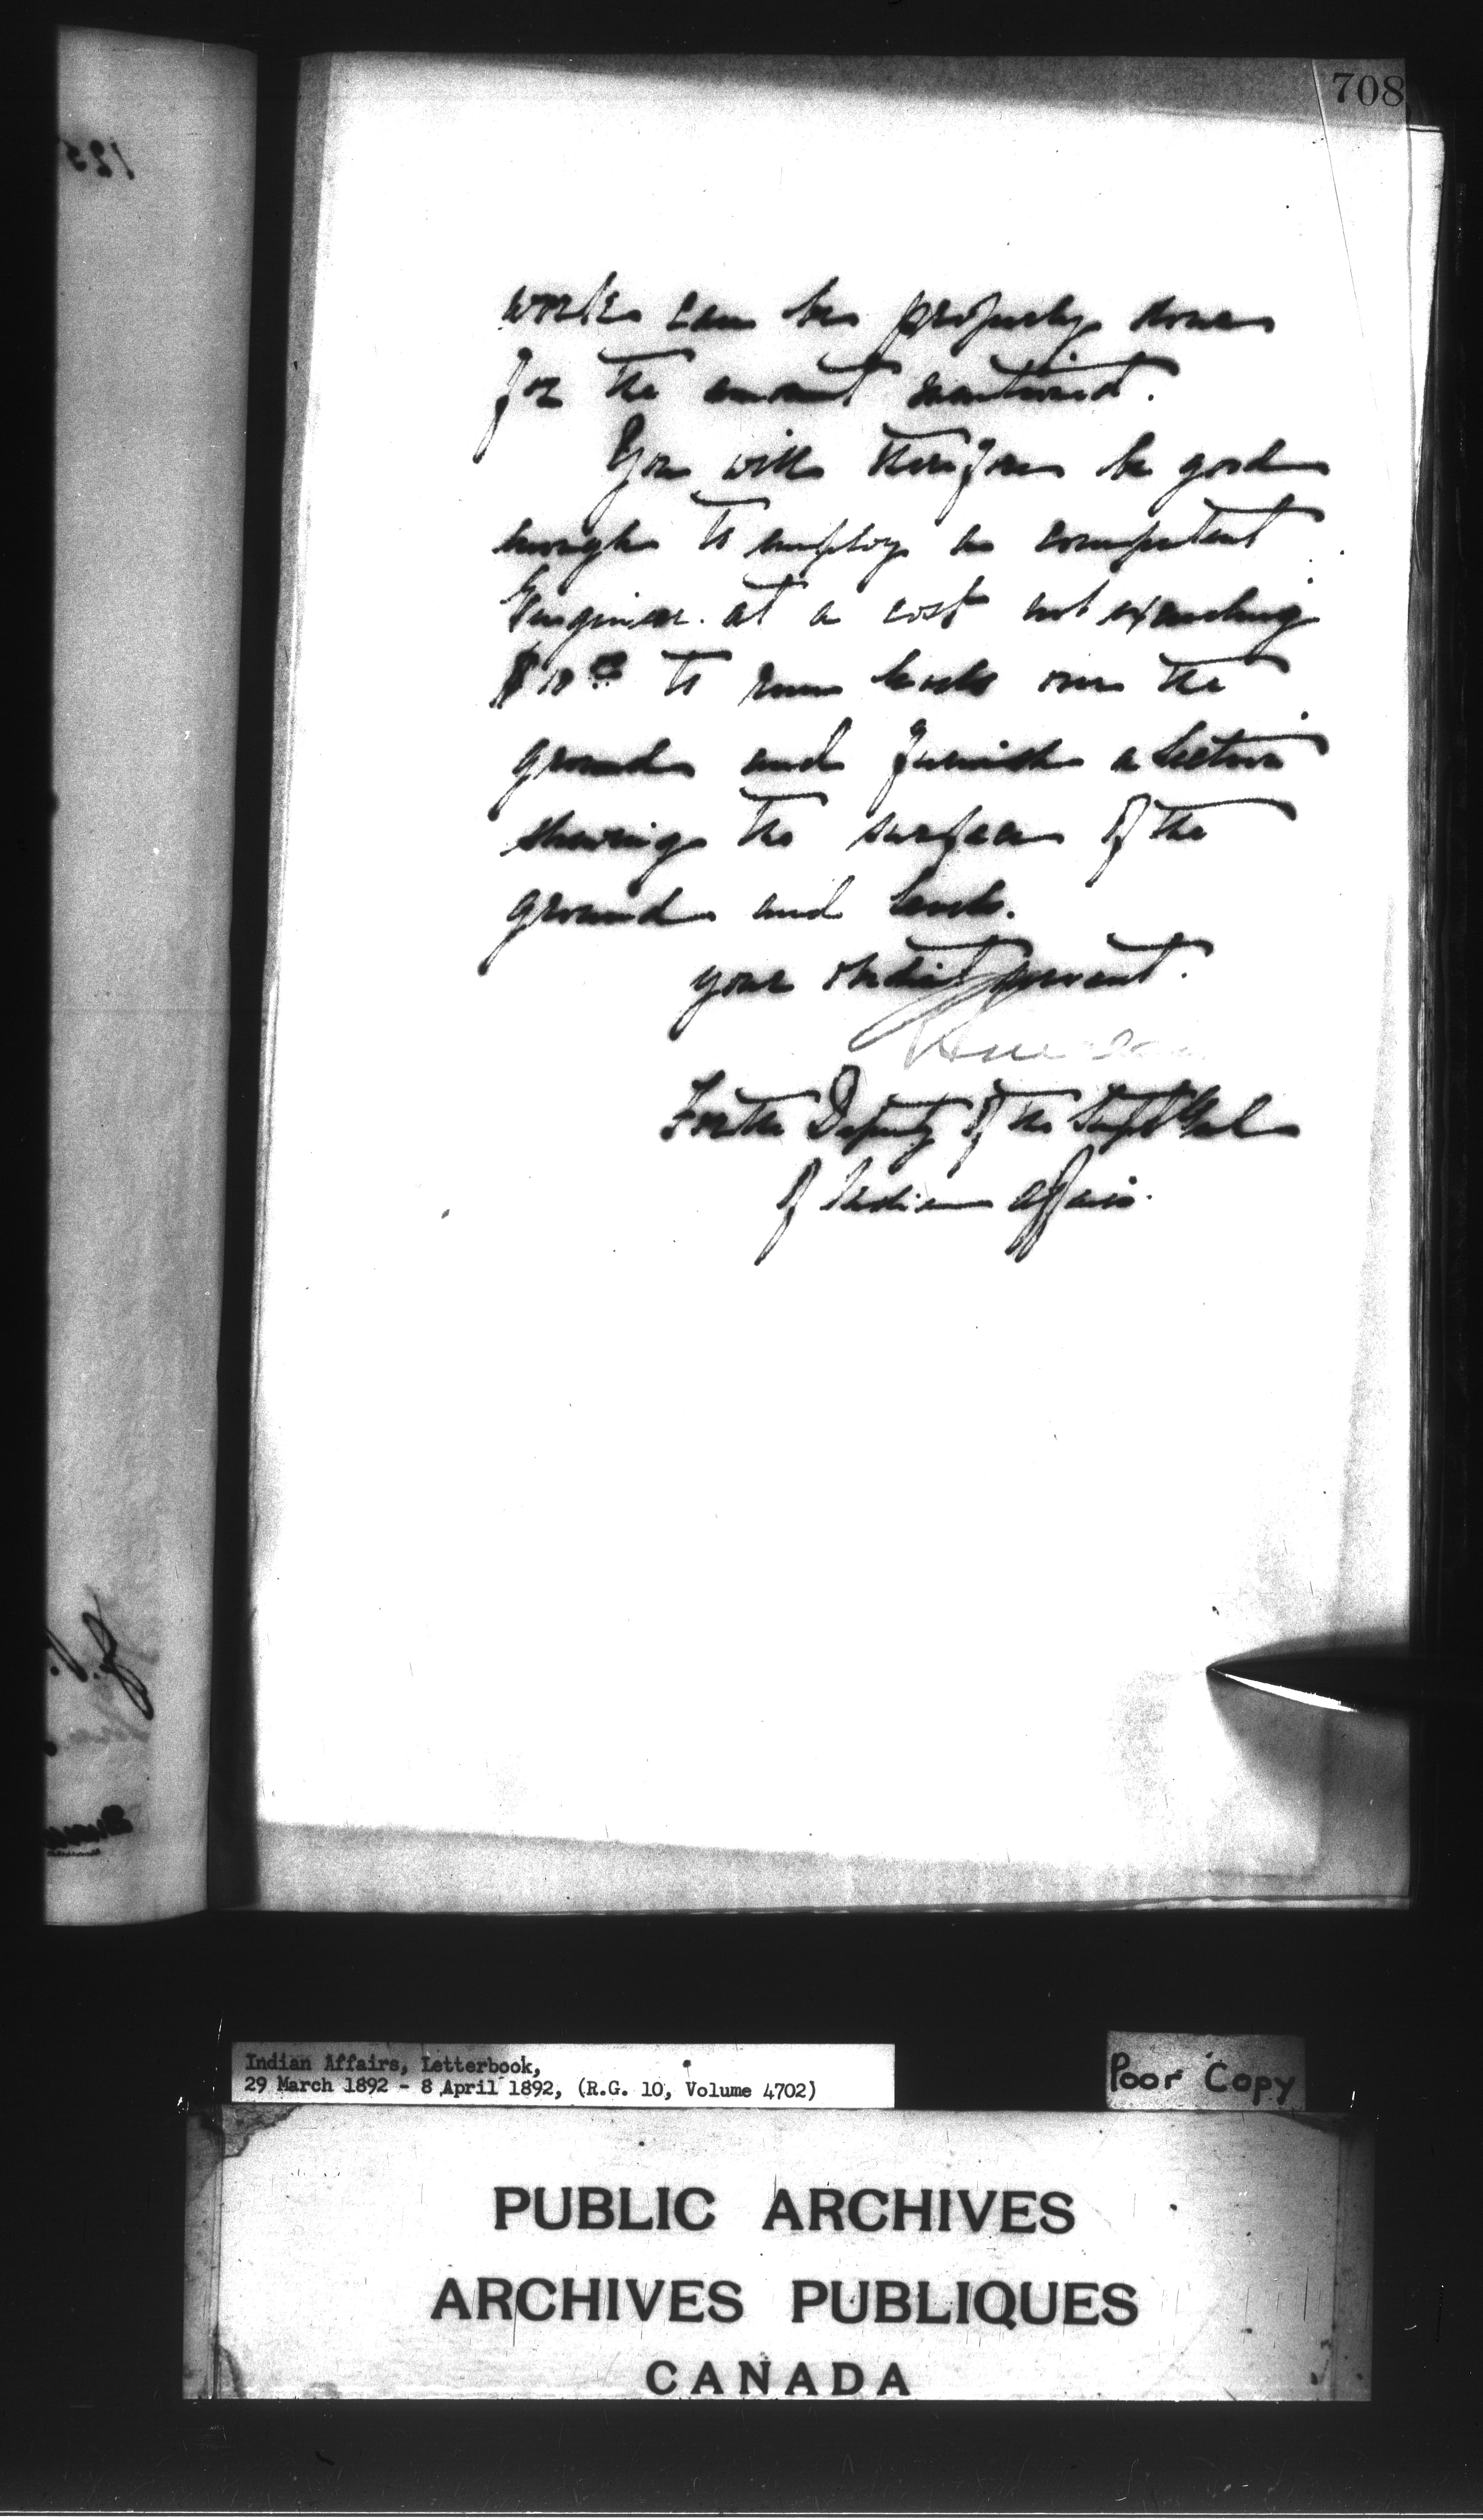 708
work can be properly done
for the amount mentioned.
You will therefore be good
enough to employ a competent
Engineer at a cost not exceeding
$10.00 to run levels over the
ground and furnish a section
shewing the surface of the
ground and levels.
your obedient servant.
For the Deputy of the Supt Genl
of Indian Affairs.
Indian Affairs, Letterbook,
29 March 1892 - 8 April 1892, (R.G. 10, Volume 4702)
Poor Copy
PUBLIC ARCHIVES
ARCHIVES PUBLIQUES
CANADA